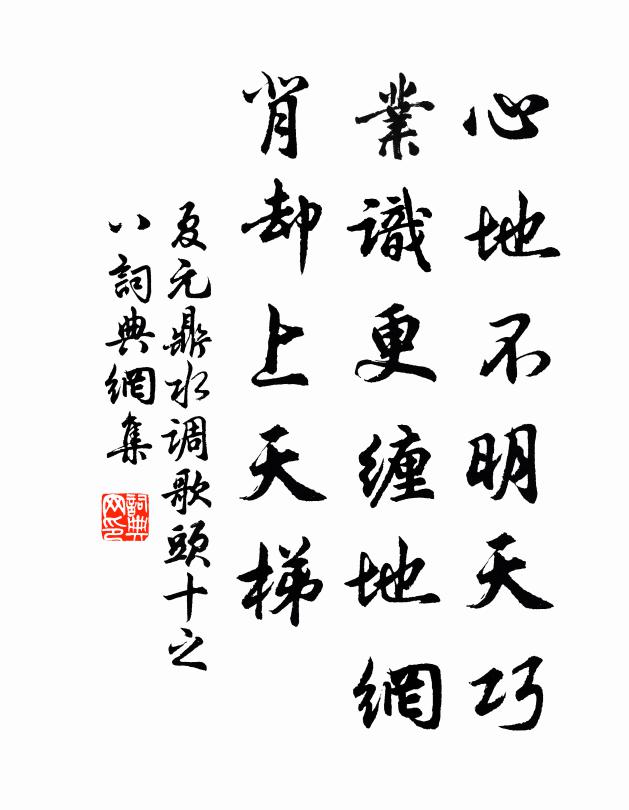 心地不明天巧
業識更纏地網
肯却上天梯
夏元鼎水调歌頭十之
八詞典網集
詞典
网印